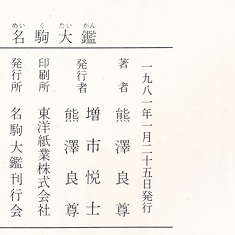 名駒大鑑
めいくたいかん
一九八一年一月二十五日発行
著者 熊澤良尊
発行者 増市悦士
熊澤良尊
印刷所 東洋紙業株式会社
発行所 名駒大鑑刊行会